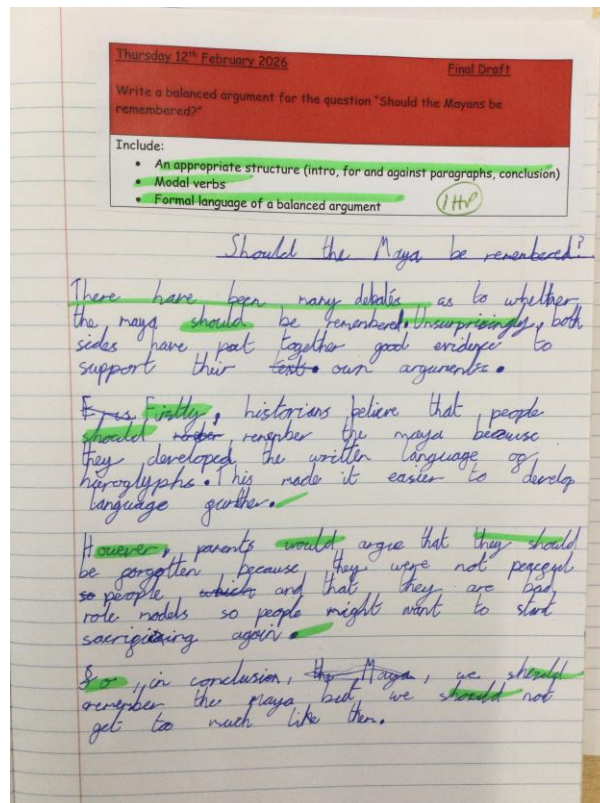 Thursday 12th February 2026
Final Draft
Write a balanced argument for the question "Should the Mayans be
remembered?"
Include:
• An appropriate structure (intro, for and against paragraphs, conclusion)
• Modal verbs
• Formal language of a balanced argument
1HP
Should the Maya be remembered?
There have been many debates as to whether
the maya should be remembered. Unsurprisingly, both
sides have pat together good evidence to
support their text. own arguments.
Firstly, historians believe that people
should remember the maya because
they developed the written language of
hieroglyphs. This made it easier to develop
language further.
However, parents would argue that they should
be forgotten because they were not peaceful
so people which and that they are bad
role models so people might want to start
sacrificing again.
So, in conclusion, the Maya, we should
remember the maya but we should not
get too much like them.